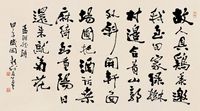 故人具鷄黍邀
我至田家綠樹
村邊合青山郭
外斜開軒面
場圃把酒話桑
麻待到重陽日
還來就菊花
孟浩然詩